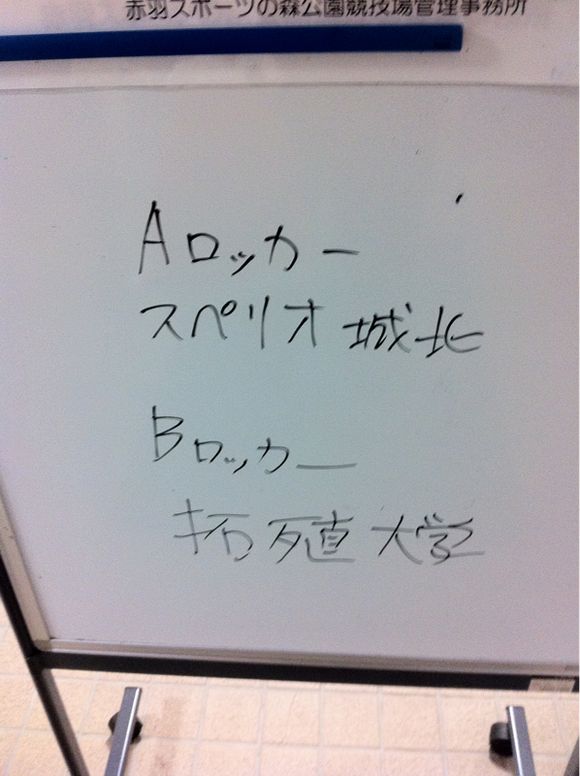 赤羽スポーツの森公園競技場管理事務所
Aロッカー
スペリオ城北
Bロッカー
拓殖大学